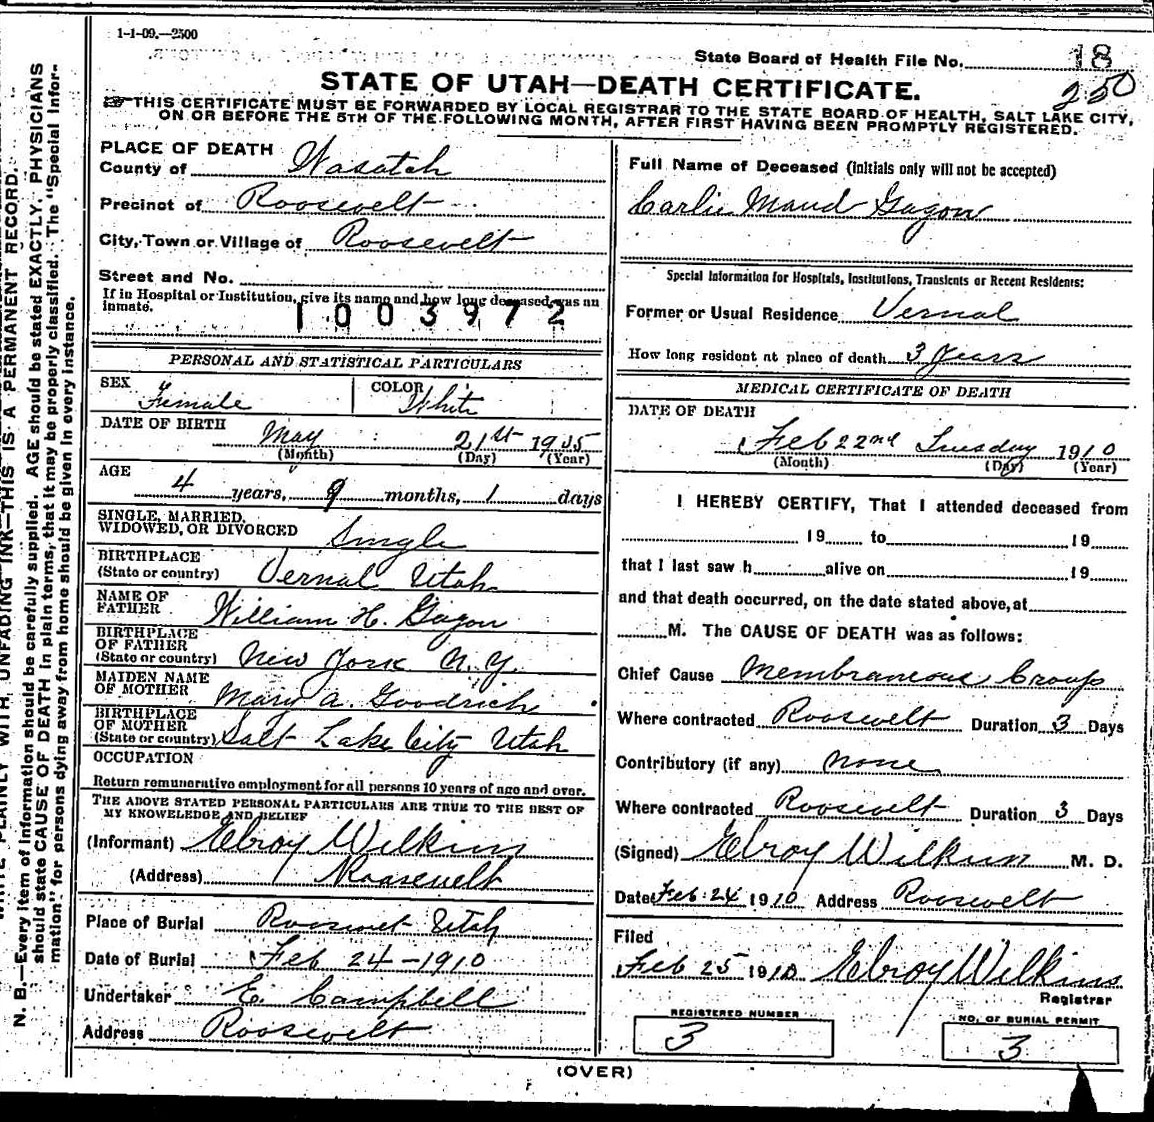 1-1-09.—2500
State Board of Health File No. 18
250
STATE OF UTAH—DEATH CERTIFICATE.
☞THIS CERTIFICATE MUST BE FORWARDED BY LOCAL REGISTRAR TO THE STATE BOARD OF HEALTH, SALT LAKE CITY,
ON OR BEFORE THE 5TH OF THE FOLLOWING MONTH, AFTER FIRST HAVING BEEN PROMPTLY REGISTERED.
PLACE OF DEATH
County of Wasatch
Precinct of Roosevelt
City, Town or Village of Roosevelt
Street and No.
If in Hospital or Institution, give its name and how long deceased was an
inmate.
1003972
PERSONAL AND STATISTICAL PARTICULARS
SEX Female COLOR White
DATE OF BIRTH May 21st 1905
(Month) (Day) (Year)
AGE
4 years, 9 months, 1 days
SINGLE, MARRIED,
WIDOWED, OR DIVORCED Single
BIRTHPLACE
(State or country) Vernal Utah
NAME OF
FATHER William H. Gagon
BIRTHPLACE
OF FATHER
(State or country) New York N.Y.
MAIDEN NAME
OF MOTHER Mary A. Goodrich
BIRTHPLACE
OF MOTHER
(State or country) Salt Lake City Utah
OCCUPATION
Return remunerative employment for all persons 10 years of age and over.
THE ABOVE STATED PERSONAL PARTICULARS ARE TRUE TO THE BEST OF
MY KNOWELEDGE AND BELIEF
(Informant) Elroy Wilkins
(Address) Roosevelt
Place of Burial Roosevelt Utah
Date of Burial Feb 24-1910
Undertaker E. Campbell
Address Roosevelt
Full Name of Deceased (initials only will not be accepted)
Carlie Maud Gagon
Special Information for Hospitals, Institutions, Transients or Recent Residents:
Former or Usual Residence Vernal
How long resident at place of death 3 years
MEDICAL CERTIFICATE OF DEATH
DATE OF DEATH
Feb 22nd Tuesday 1910
(Month) (Day) (Year)
I HEREBY CERTIFY, That I attended deceased from
19 to 19
that I last saw h alive on 19
and that death occurred, on the date stated above, at
M. The CAUSE OF DEATH was as follows:
Chief Cause Membraneous Croup
Where contracted Roosevelt Duration 3 Days
Contributory (if any) none
Where contracted Roosevelt Duration 3 Days
(Signed) Elroy Wilkins M. D.
Date Feb. 24 1910 Address Roosevelt
Filed
Feb 25 1910 Elroy Wilkins
Registrar
REGISTERED NUMBER
3
NO. OF BURIAL PERMIT
3
(OVER)
WRITE PLAINLY WITH UNFADING INK—THIS IS A PERMANENT RECORD.
N. B.—Every item of information should be carefully supplied. AGE should be stated EXACTLY, PHYSICIANS
should state CAUSE OF DEATH in plain terms, that it may be properly classified. The "Special Infor-
mation" for persons dying away from home should be given in every instance.